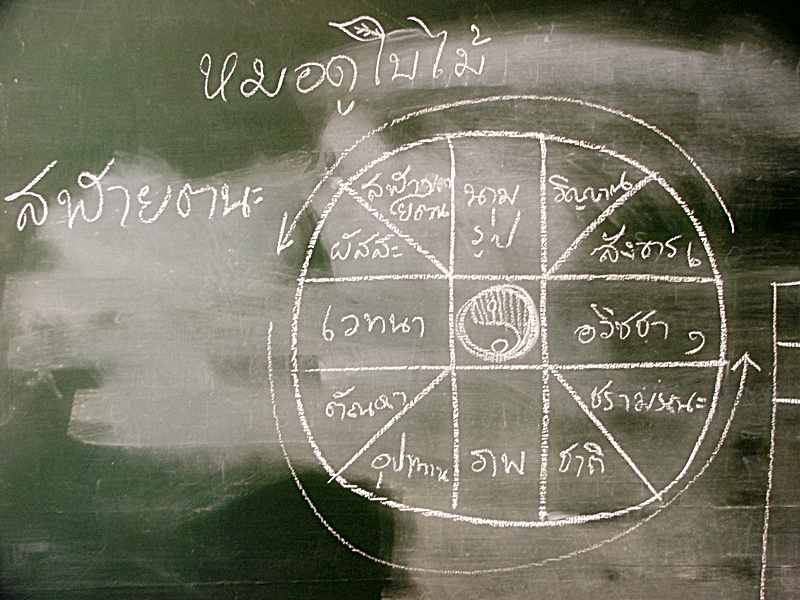 หมอดูใบไม้
สฬายตนะ
สฬา
ยตน
นาม
รูป
วิญญาณ
สังขาร
ผัสสะ
เวทนา
อวิชชา ๑
ตัณหา
ชรามรณะ
อุปาทาน
ภพ
ชาติ